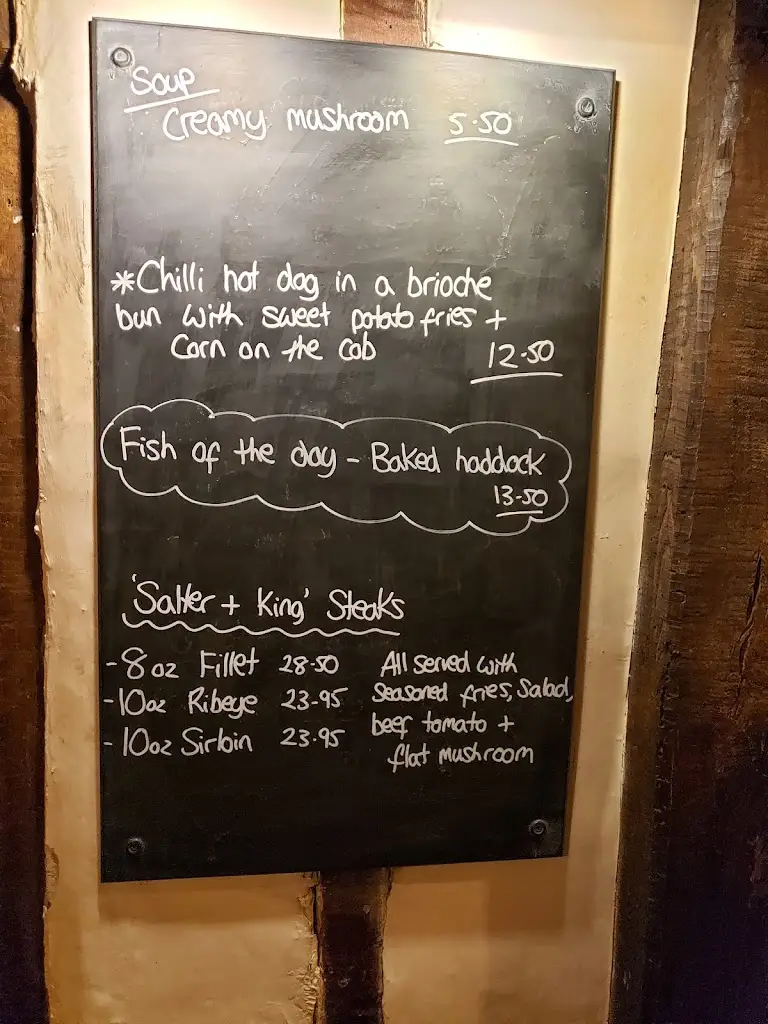 Soup
Creamy mushroom 5.50
*Chilli hot dog in a brioche
bun with sweet potato fries +
Corn on the cob 12.50
Fish of the day - Baked haddock
13.50
'Salter + King' Steaks
- 8oz Fillet 28.50
- 10oz Ribeye 23.95
- 10oz Sirloin 23.95
All served with
Seasoned fries, Salad,
beef tomato +
flat mushroom